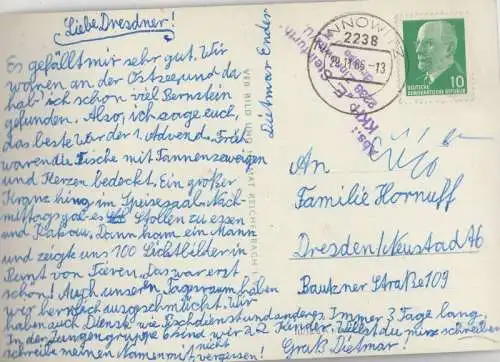 Liebe Dresdner!
Es gefällt mir sehr gut. Wir
waren an der Ostsee und da
hab' ich schon viel Bernstein
gefunden. Also, ich sage euch,
das beste war der 1. Advend. Früh
waren die Tische mit Tannenzweigen
und Kerzen bedeckt. Ein großer
Kranz hing im Speisesaal. Nach-
mittags gab es Stollen zu essen
und Kakau. Dann kam ein Mann
und zeigte uns 100 Lichtbilder in
Bunt von Tieren. Das war erst
schön! Auch unseren Tagesraum haben
wir herrlich ausgeschmückt. Wir
haben auch Dienste wie Tischdienst und anderes. Immer 3 Tage lang.
In der Jungengruppe E sind wir 22 Kinder. Willst du mir schreiben
schreibe meinen Namen mit, nicht vergessen!
Gruß Dietmar!
Dietmar Ender
VEB BILD UND HEIMAT REICHENBACH I. V.
ZINNOWITZ
2238
29.11.65-13
Abs.:
KKH
2238
10
DEUTSCHE
DEMOKRATISCHE REPUBLIK
An
Familie Hornuff
Dresden/Neustadt A6
Bautzner Straße 109